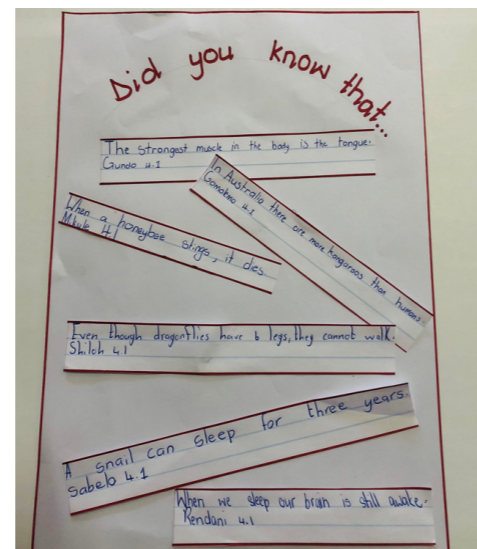 Did you know that...
The strongest muscle in the body is the tongue.
Gundo 4.1
In Australia there are more kangaroos than humans.
4.1
When a honeybee stings, it dies
4.1
Even though dragonflies have 6 legs, they cannot walk.
Shiloh 4.1
A snail can sleep for three years.
Sabelo 4.1
When we sleep our brain is still awake.
Rendani 4.1